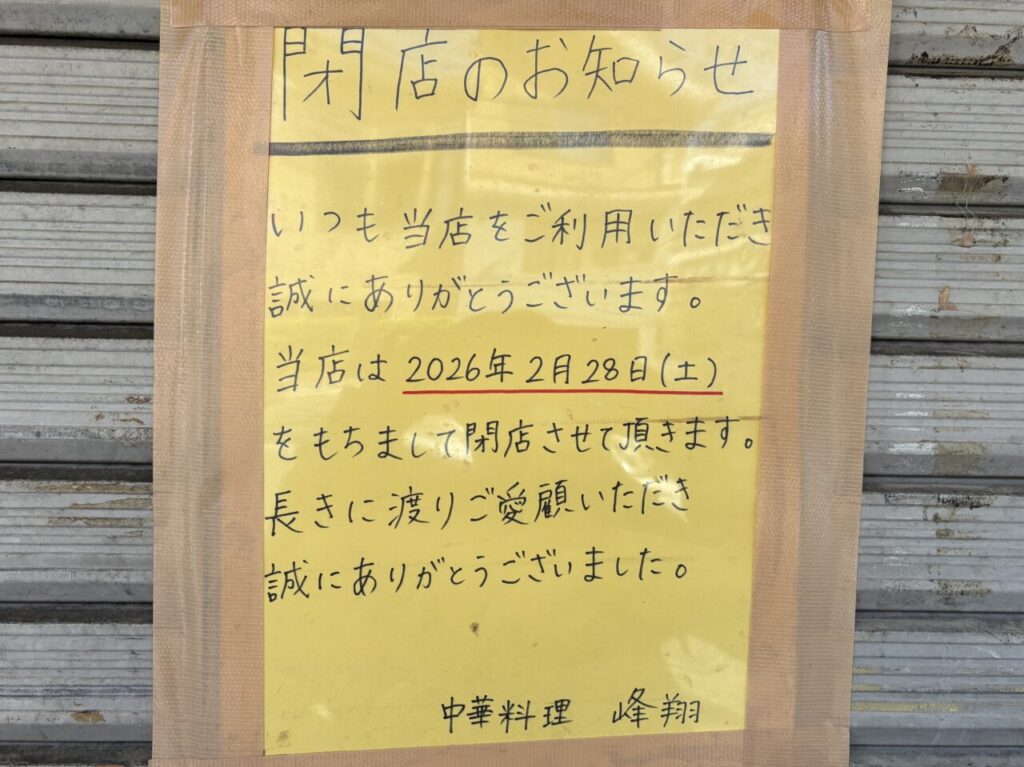 閉店のお知らせ
いつも当店をご利用いただき
誠にありがとうございます。
当店は 2026年2月28日(土)
をもちまして閉店させて頂きます。
長きに渡りご愛顧いただき
誠にありがとうございました。
中華料理 峰翔